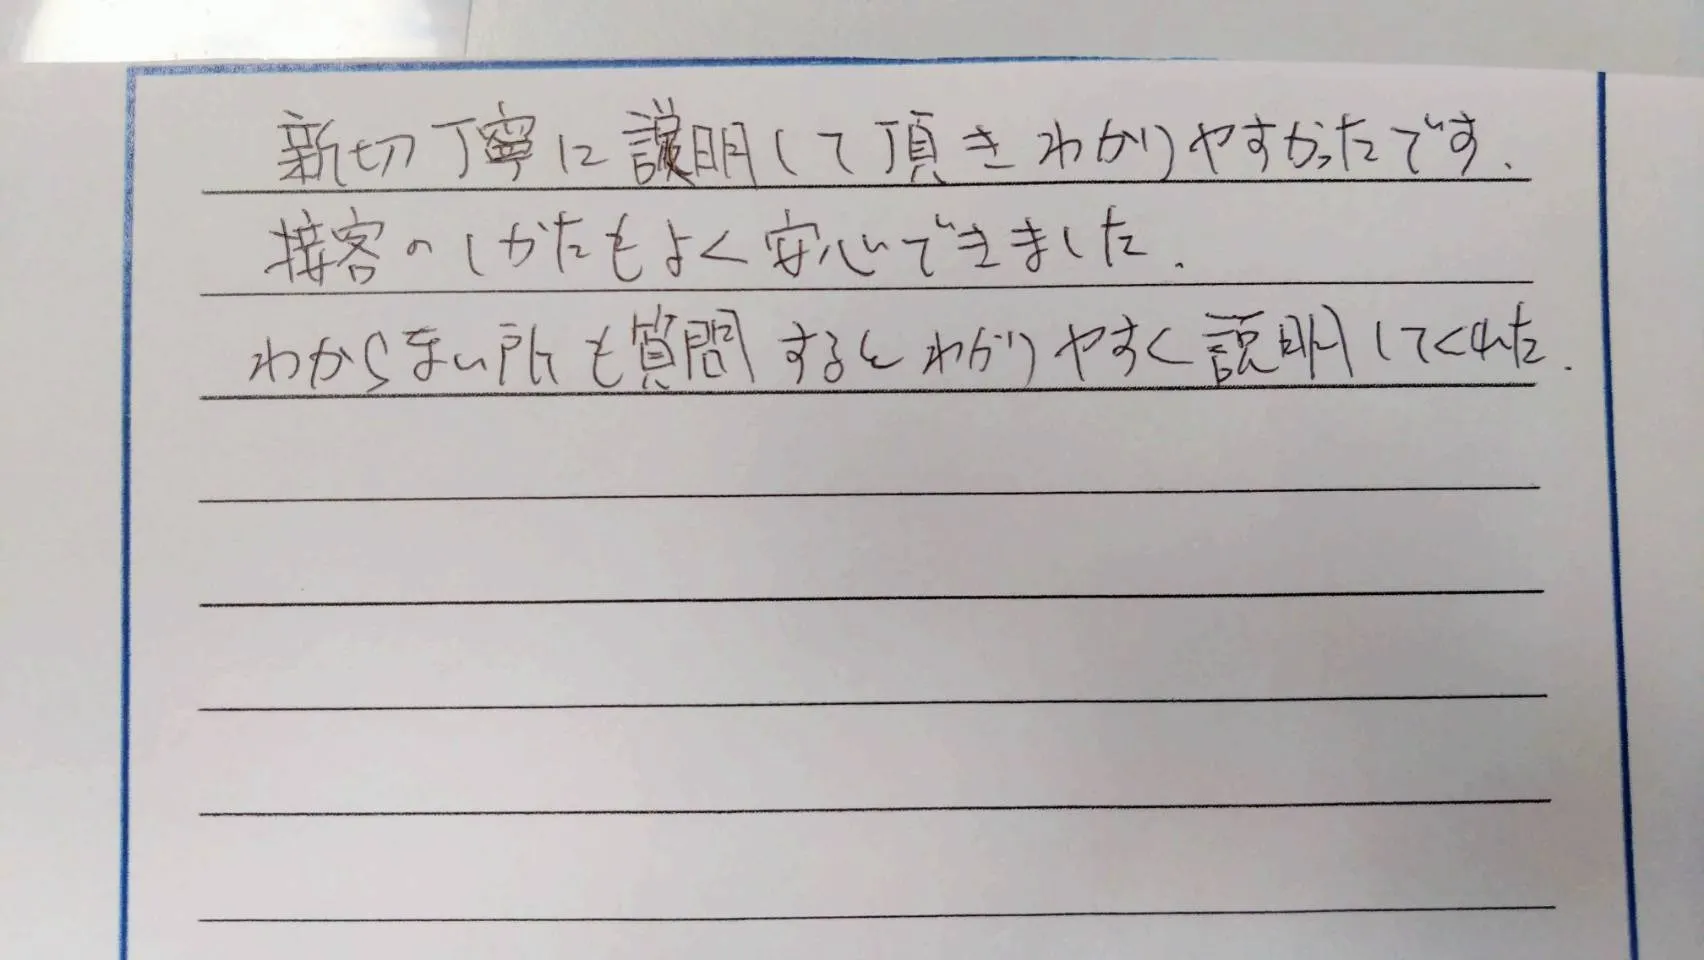 新切丁寧に説明して頂きわかりやすかったです.
接客のしかたもよく安心できました.
わからない所も質問するとわかりやすく説明してくれた.